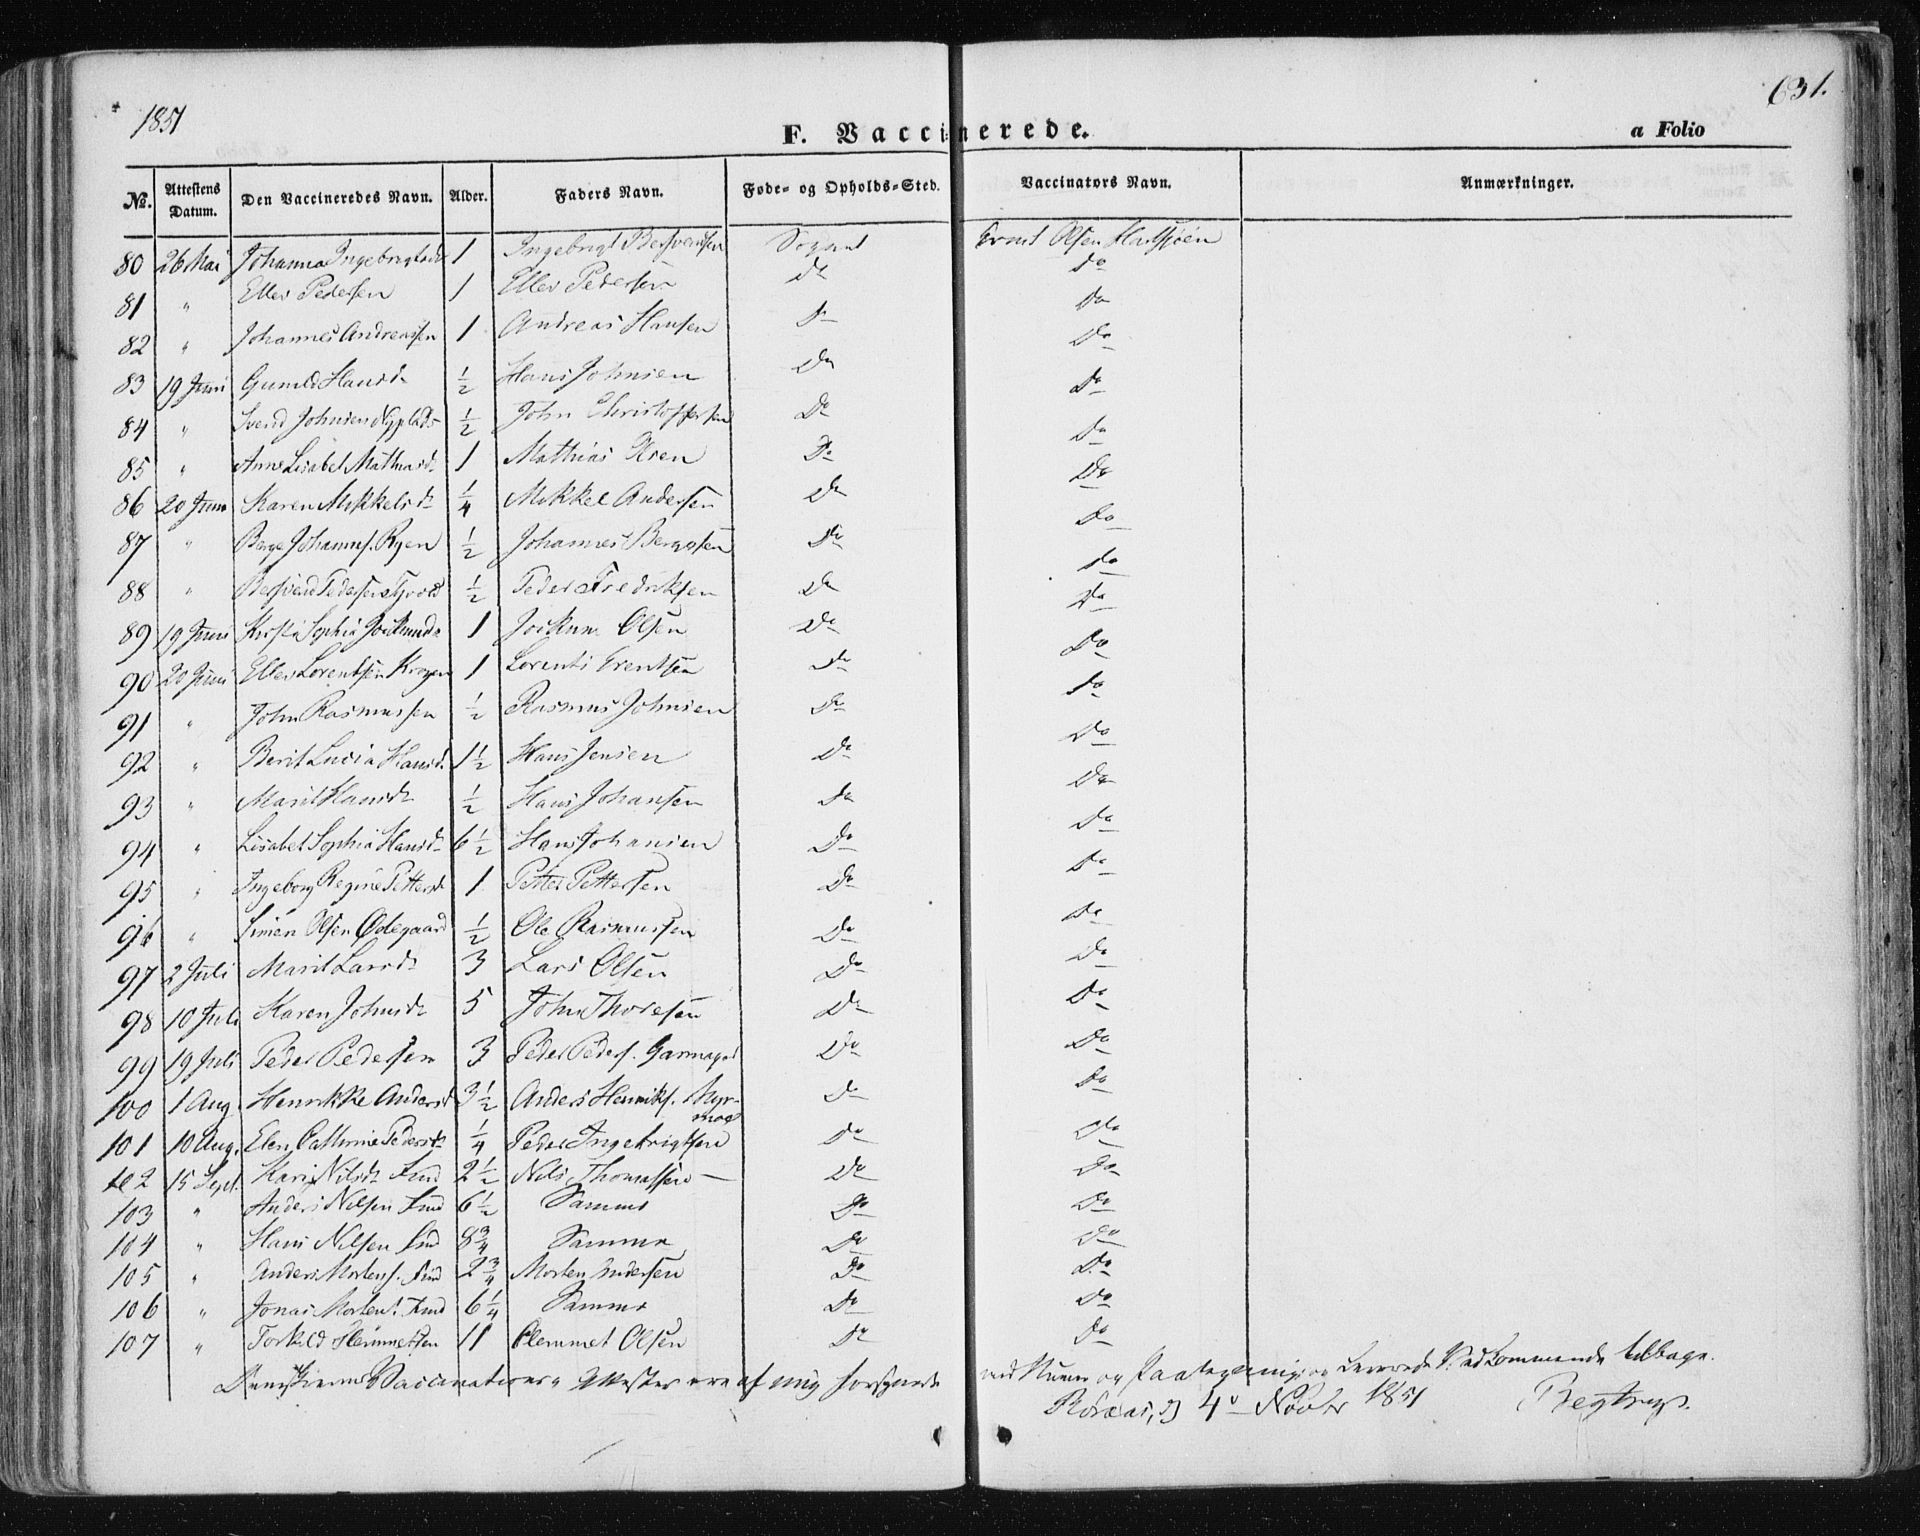 1851
631.
F. Vaccinerede.
a Folio
No. Attestens Datum. Den Vaccineredes Navn. Alder. Faders Navn. Føde- og Opholds-Sted. Vaccinators Navn. Anmærkninger.
80 26 Mai Johanna Ingebrigtsd 1 Ingebrigt Bersvensen Sognet Ernst Olsen
81 " Ellev Pedersen 1 Ellev Pedersen Do Do
82 " Johannes Andreassen 1 Andreas Hansen Do Do
83 19 Juni Gunild Hansd 1/2 Hans Johnsen Do Do
84 " Svend Johnsen 1/2 John Christophersen Do Do
85 " Anne Lisabet Mathiasd 1 Mathias Do Do
86 20 Juni Karen Mikkelsd 1/4 Mikkel Andersen Do Do
87 " Johannes. Ryen 1/2 Johannes Do Do
88 " Bersvend Pedersen 1/2 Peder Fredriksen Do Do
89 19 Juni Sophia 1 Jockum Olsen Do Do
90 20 Juni Ellev Lorentsen 1 Lorents Do Do
91 " John Rasmussen 1/2 Rasmus Johnsen Do Do
92 " Berit Lucia Hansd. 1 1/2 Hans Jensen Do Do
93 " Marit Hansd 1/2 Hans Johansen Do Do
94 " Lisabet Sophia Hansd 6 1/2 Hans Johansen Do Do
95 " Ingeborg Regine Pettersd 1 Petter Pettersen Do Do
96 " Simen Olsen Ødegaard 1/2 Ole Rasmussen Do Do
97 2 Juli Marit Larsd 3 Lars Olsen Do Do
98 10 Juli Karen Johnsd 5 John Thoresen Do Do
99 19 Juli Peder Pedersen 3 Peder Peders. Do Do
100 1 Aug. Henrikke Andersd 3 1/2 Anders Henriks. Myr-
moe Do Do
101 10 Aug. Elen Cathrine Pedersd 1/4 Peder Ingebrigtsen Do Do
102 15 Sept. Kari Nilsd Find 2 1/2 Nils Thomassen Do Do
103 " Anders Nilsen Find 6 1/2 Samme Do Do
104 " Hans Nilsen Find 8 3/4 Samme Do Do
105 " Anders Mortens. Find 2 3/4 Morten Andersen Do Do
106 " Jonas Mortens. Find 6 1/4 Samme Do Do
107 " Torkild Klemmetsen 11 Clemmet Olsen Do Do
Vaccinations Attester ere af mig med og leverede Vedkommende tilbage.
Røraas, d 4 Novbr 1851 Begtrup.